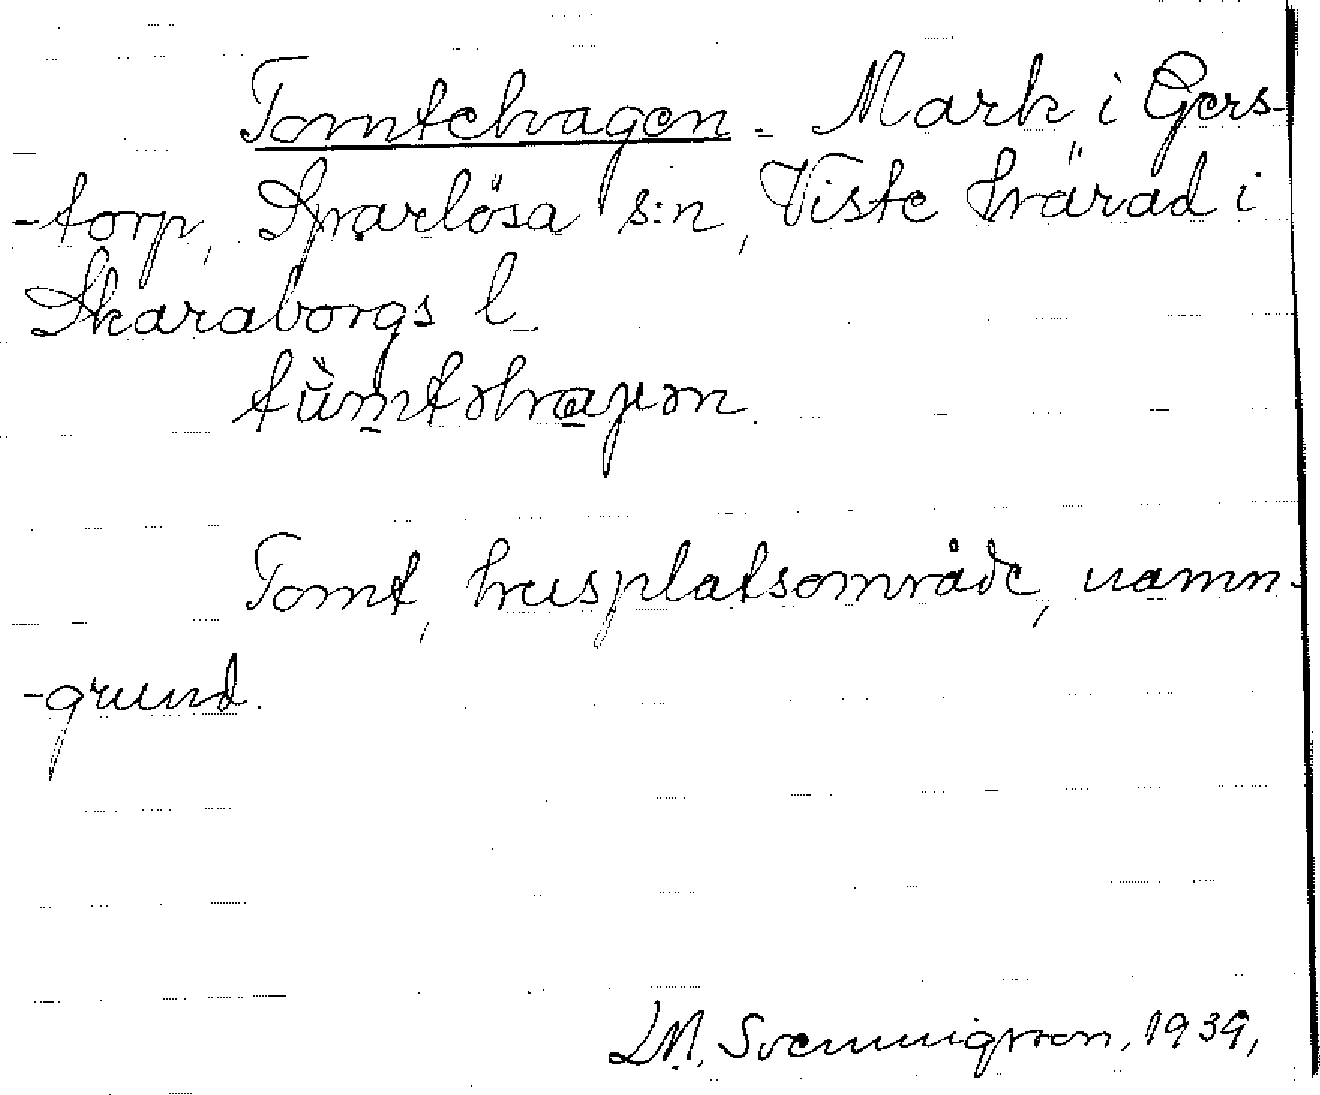 Tomtehagen - Mark i Gers-
-torp, Sparlösa s:n, Viste härad i
Skaraborgs l
Tomt, husplatsområde, namn-
-grund.
L.M. Svenningsson, 1939,